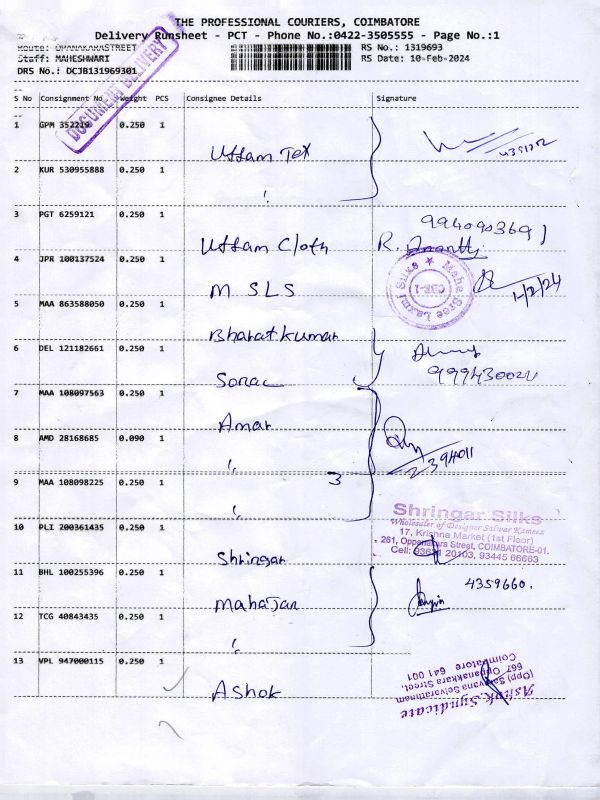 THE PROFESSIONAL COURIERS, COIMBATORE
Delivery Runsheet - PCT - Phone No.:0422-3505555 - Page No.:1
Route: OPANAKARASTREET
RS No.: 1319693
Staff: MAHESHWARI
RS Date: 10-Feb-2024
DRS No.: DCJB131969301
DOCUMENT DELIVERY
S No Consignment No Weight PCS Consignee Details Signature
1 GPM 352219 0.250 1 Uttam Tex
2 KUR 530955888 0.250 1 "
3 PGT 6259121 0.250 1 Uttam Cloth
9940903691
R.
4 JPR 100137524 0.250 1 M SLS
Maha Sree Laxmi Silks ★ CBE-1
1/2/24
5 MAA 863588050 0.250 1 Bharat kumar
6 DEL 121182661 0.250 1
7 MAA 108097563 0.250 1 Amar
8 AMD 28168685 0.090 1 "
2394011
9 MAA 108098225 0.250 1 "
3
10 PLI 200361435 0.250 1 Shringar
Shringar Silks
Wholesaler of Designer Salwar Kameez
17, Krishna Market (1st Floor)
261, Oppanakara Street, COIMBATORE-01.
Cell: 93621 20103, 93445 66663
11 BHL 100255396 0.250 1 Mahajan
4359660.
12 TCG 40843435 0.250 1 "
13 VPL 947000115 0.250 1 Ashok
Ashok Syndicate
(Opp) Saravana Selvarathnam
667 Oppanakkara Street,
Coimbatore 641 001